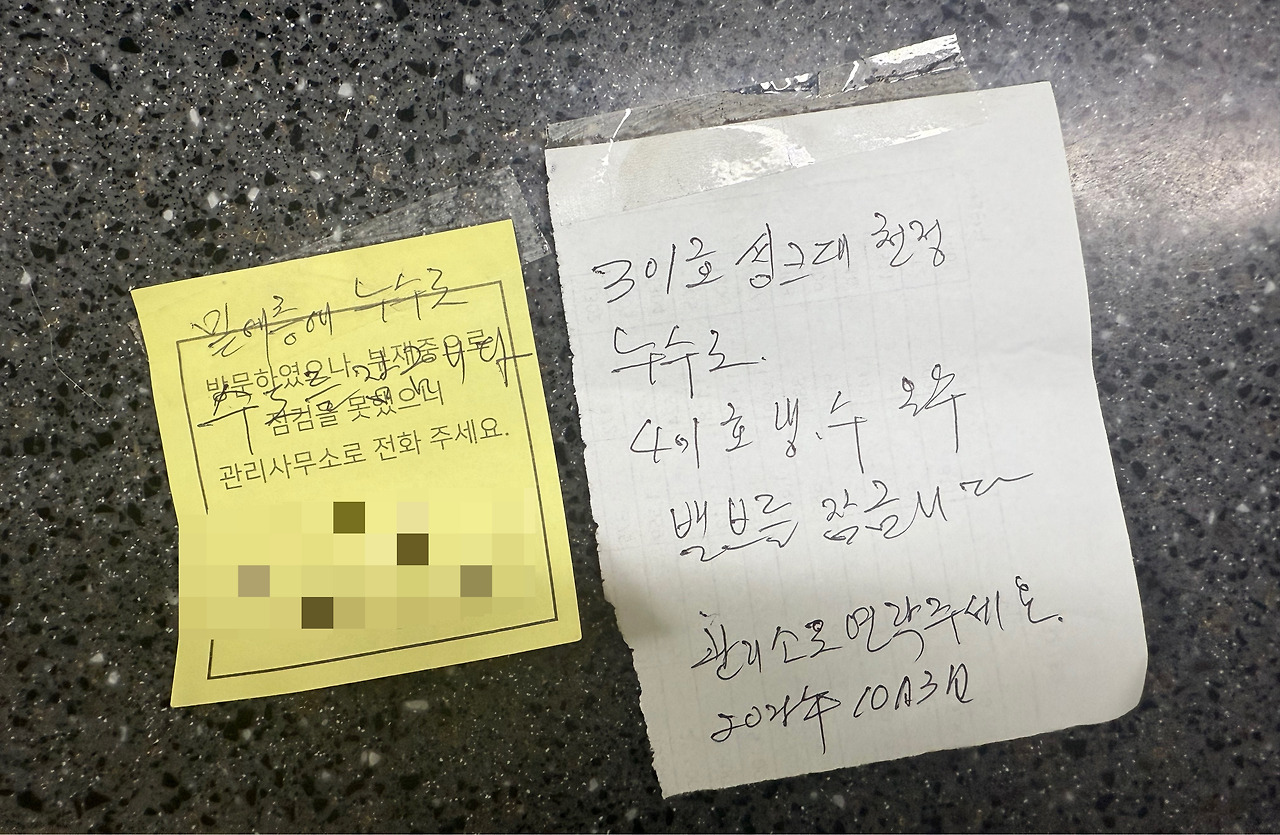 밑에층에 누수로
방문하였으나, 부재중으로
점검을 못했으니
관리사무소로 전화 주세요.
301호 씽크대 천정
누수로.
401호 냉.수 온수
밸브를 잠급니다
관리소로 연락주세요.
10月3日